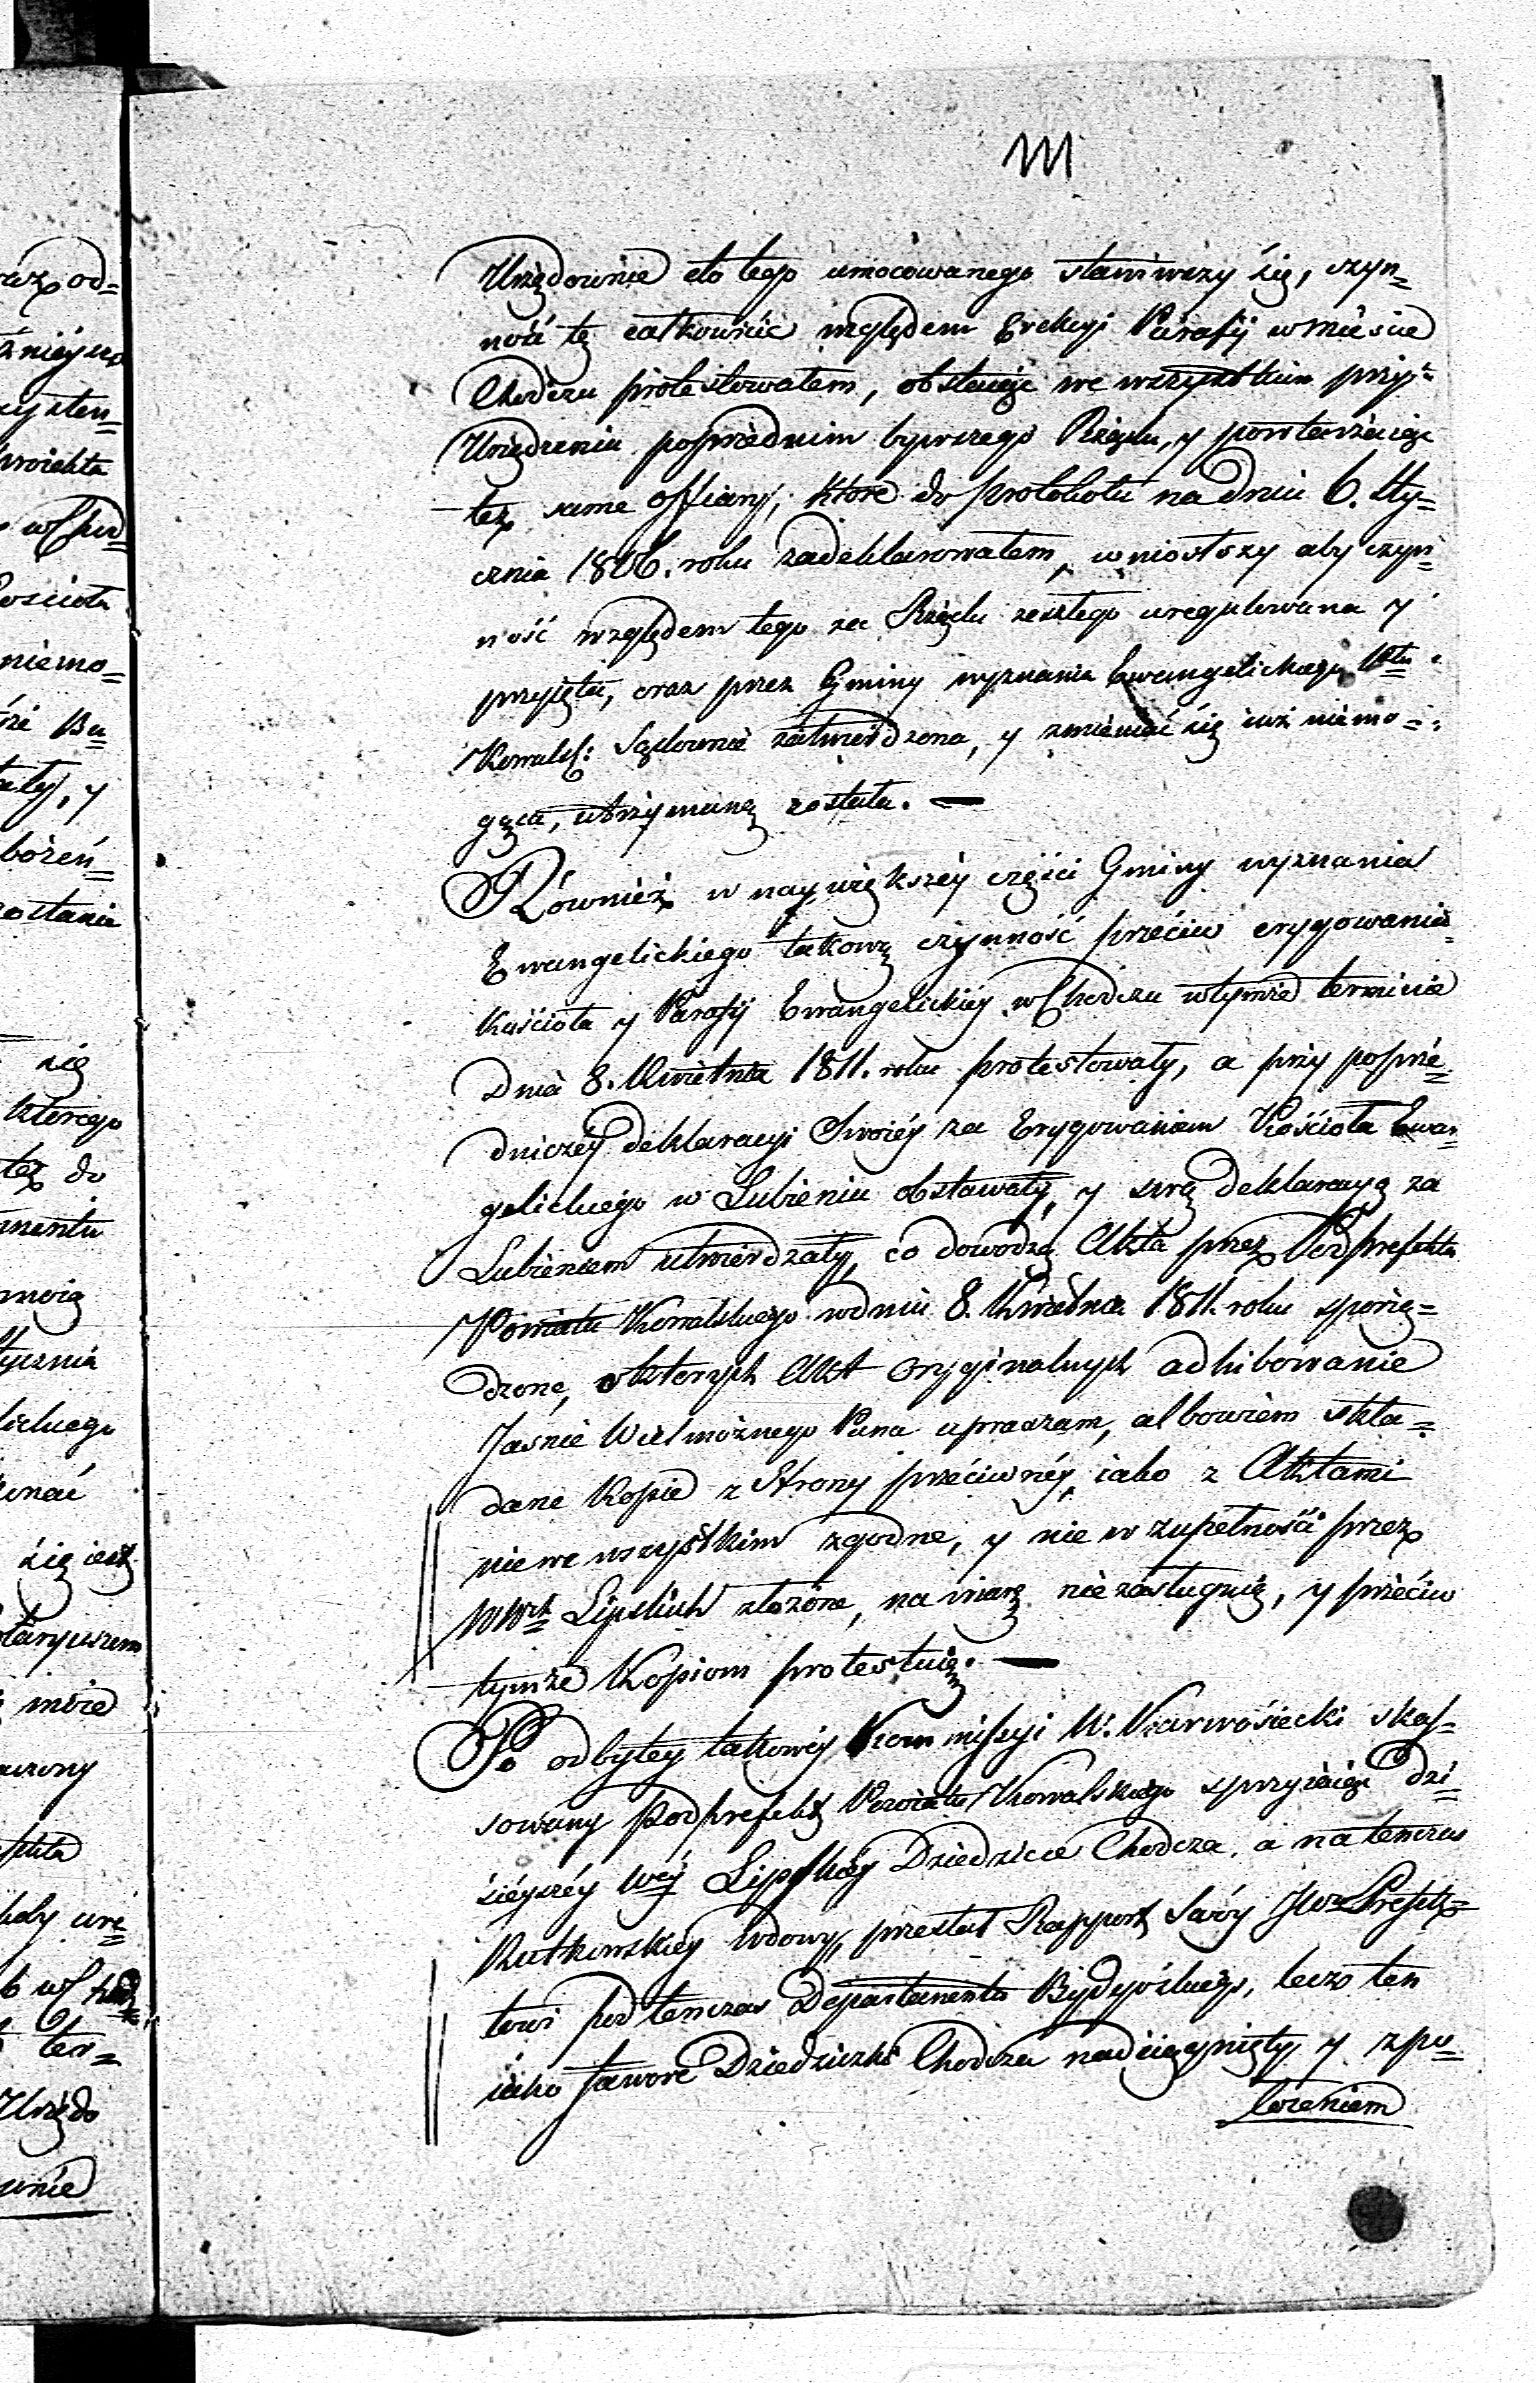 111
Urzędownie do tego umocowanego stawiwszy się, czyn=
ność tę całkowicie względem Erekcyi Parafij w mieście
Chodczu protestowałem, obstaiąc we wszystkim przy
Urządzeniu poprzednim bywszego Rządu, y powtarzaiąc
też same offiary, które do protokołu na dniu 6. Sty=
cznia 1806. roku zadeklarowałem, wniosłszy aby czyn=
ność względem tego za Rządu zeszłego uregulowana y
przyięta, oraz przez Gminy wyznania Ewangelickiego Ptu
Kowalsk: Sądownie zatwierdzona, y zmieniać się iuż niemo=
gąca, utrzymaną została. —
Również w naywiększéy części Gminy wyznania
Ewangelickiego takową czynność przećiw erygowania
Kościoła y Parafij Ewangelickiéy w Chodczu w tymże terminie
Dnia 8. Kwietnia 1811. roku protestowały, a przy poprze=
dniczéy deklaracyi Swoiéy za Erygowaniem Kościoła Ewan=
gelickiego w Lubieniu obstawały, y swą deklaracyą za
Lubieniem utwierdzały, co dowodzą Akta przez Podprefekta
Powiatu Kowalskiego w dniu 8. Kwietnia 1811. roku sporzą=
dzone, o których Akt oryginalnych adhibowanie
Jaśnie Wielmożnego Pana upraszam, albowiem skła=
dane Kopie z Strony przećiwnéy, iako z Aktami
nie we wszystkim zgodne, y nie w zupełnośći przez
WWch Lipskich złożone, na wiarę nie zasługuią, y przećiw
tymże Kopiom protestuię. —
Po odbytey takowéy Kommissyi W. Karwośiecki skas=
sowany Podprefekt Powiatu Kowalskiego sprzyiaiąc dzi=
śieyszéy Wéy Lipskiéy Dziedzicce Chodcza, a natenczas
Rutkowskiey Wdowy, przesłał Rapport Swóy JW Prefek=
towi podtenczas Departamentu Bydgoskiego, lecz ten
iako faworem Dziedziczki Chodcza nadćiągnięty y z po=
łożeniem